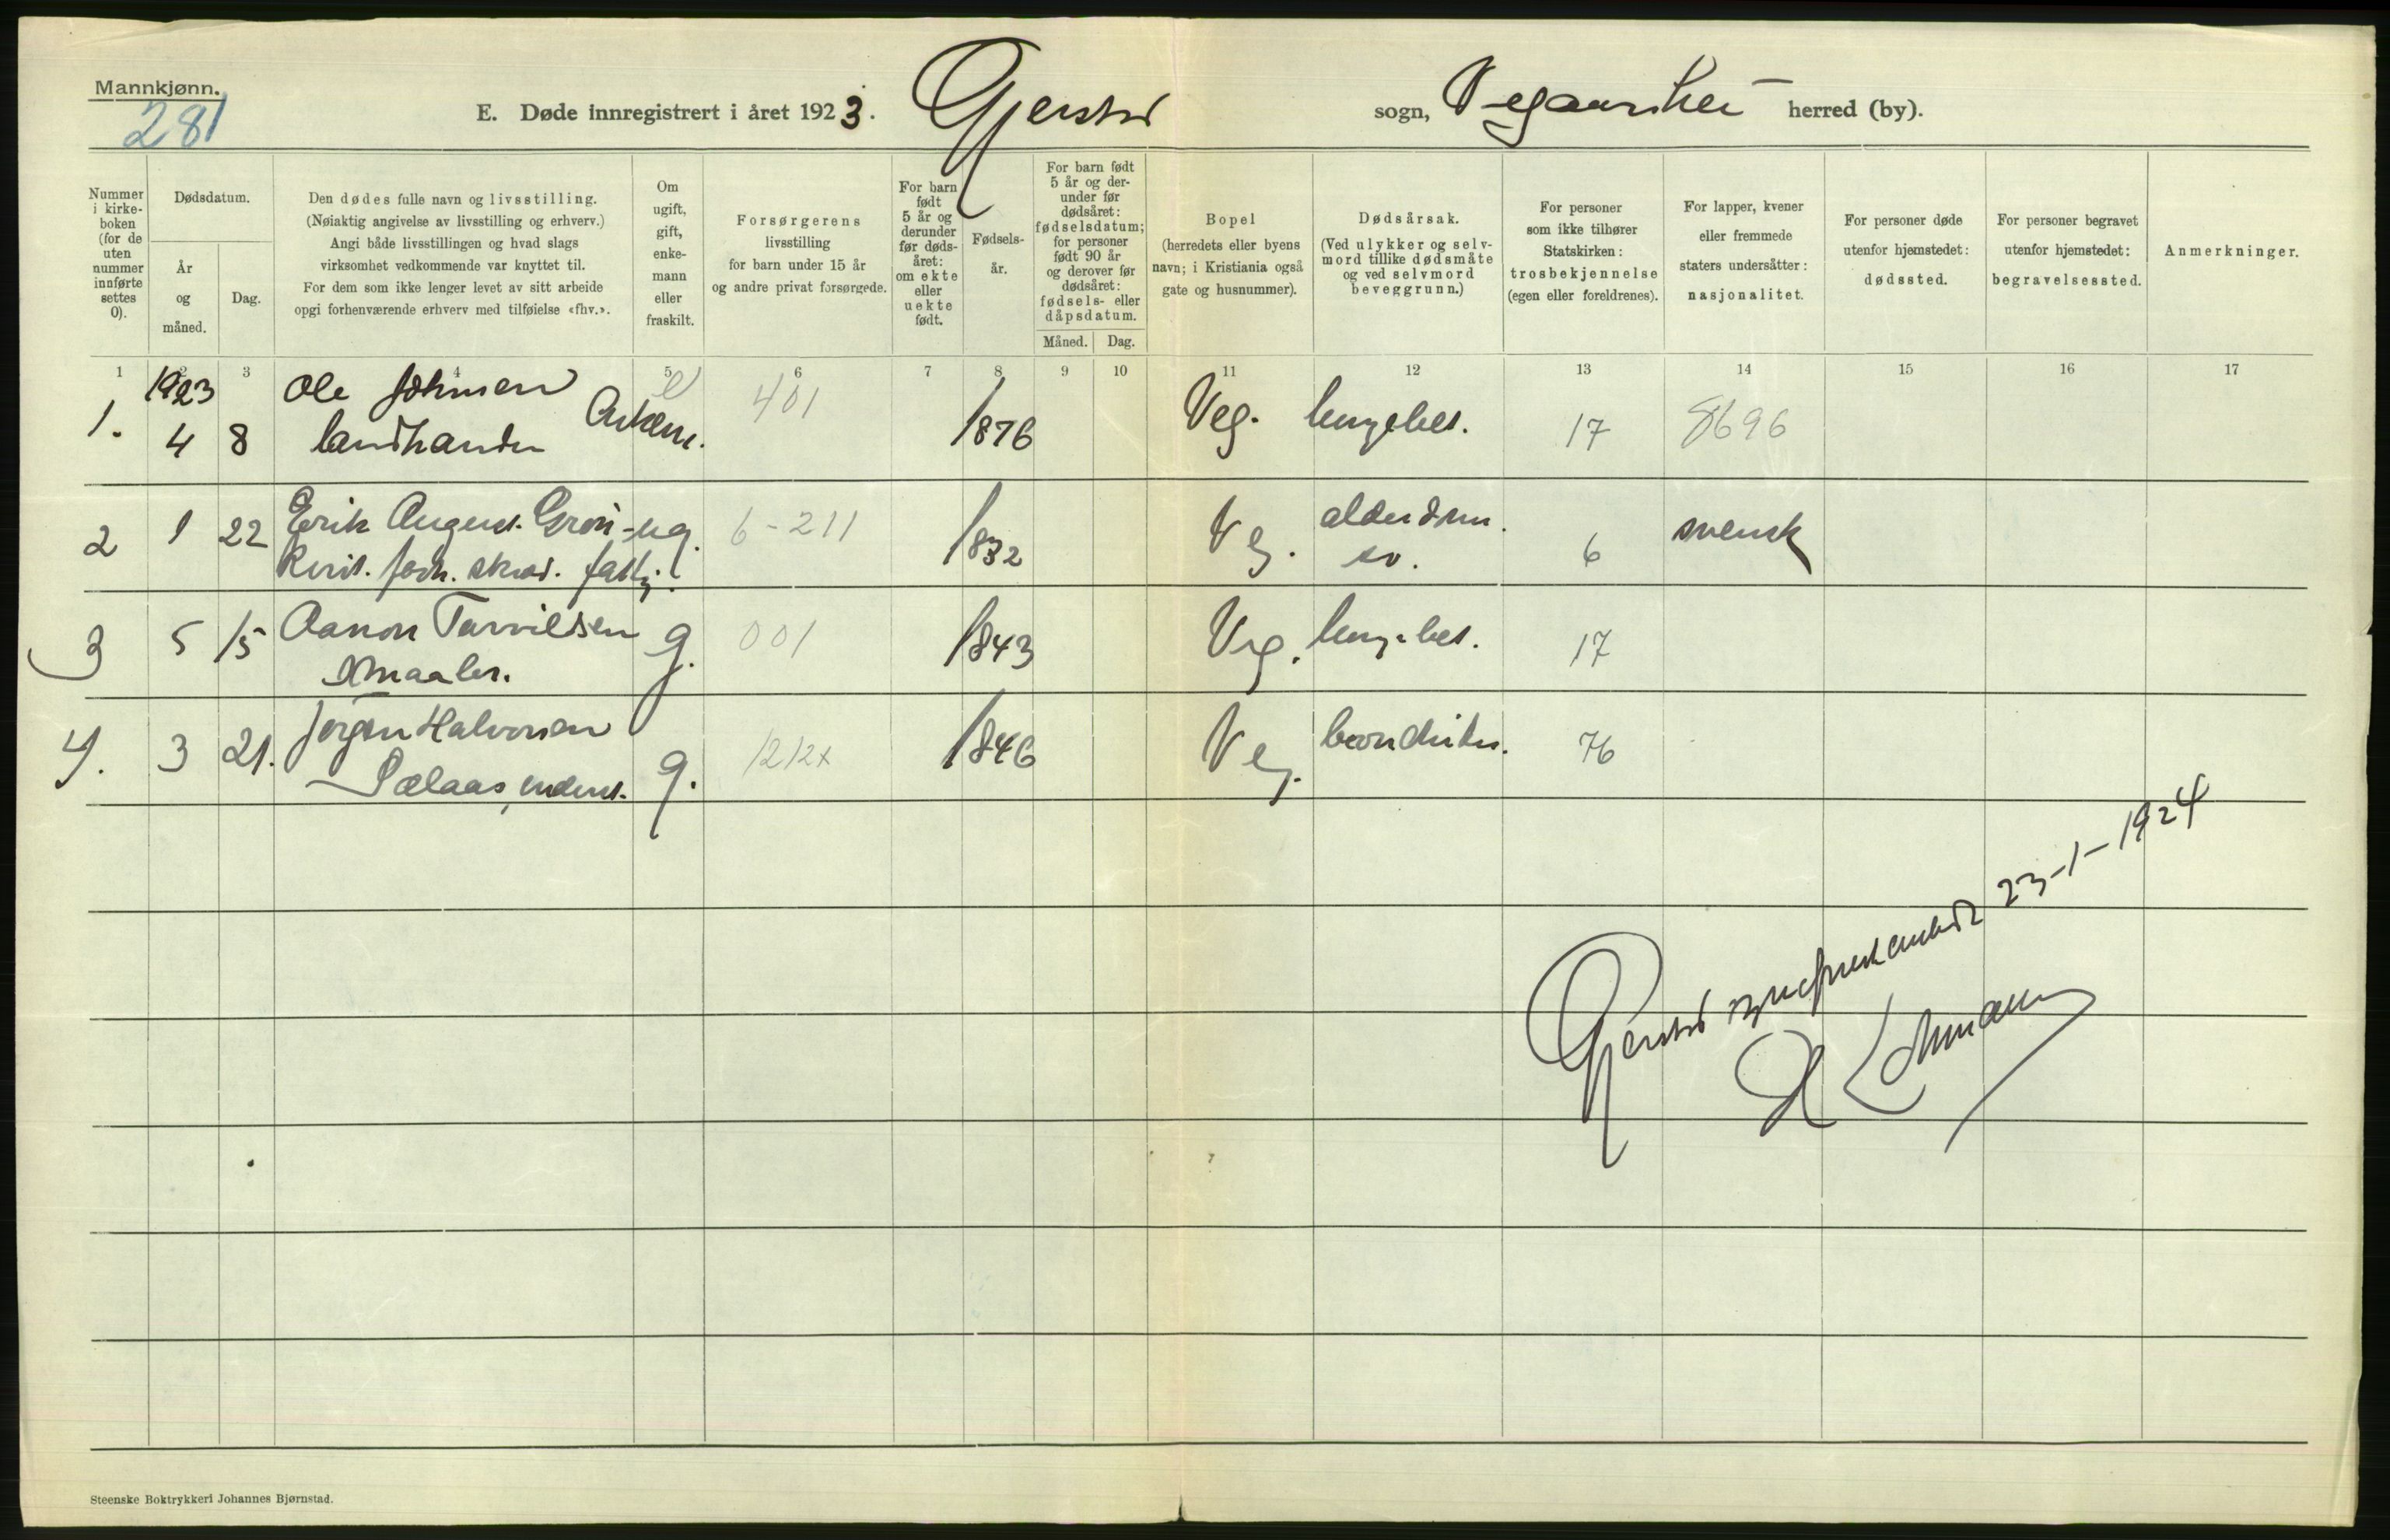 Mannkjønn.
281
E. Døde innregistrert i året 1923. Gjerstad sogn, Vegaarshei herred (by).
Nummer i kirkeboken (for de uten nummer innførte settes 0).
Dødsdatum.
År og måned.
Dag.
Den dødes fulle navn og livsstilling.
(Nøiaktig angivelse av livsstilling og erhverv.)
Angi både livsstillingen og hvad slags
virksomhet vedkommende var knyttet til.
For dem som ikke lenger levet av sitt arbeide
opgi forhenværende erhverv med tilføielse «fhv.».
Om ugift, gift, enkemann eller fraskilt.
Forsørgerens
livsstilling
for barn under 15 år
og andre privat forsørgede.
For barn født 5 år og derunder før dødsåret: om ekte eller uekte født.
Fødselsår.
For barn født 5 år og derunder før dødsåret: fødselsdatum; for personer født 90 år og derover før dødsåret: fødsels- eller dåpsdatum.
Måned. Dag.
Bopel
(herredets eller byens
navn; i Kristiania også
gate og husnummer).
Dødsårsak.
(Ved ulykker og selvmord tillike dødsmåte
og ved selvmord
beveggrunn.)
For personer
som ikke tilhører
Statskirken:
trosbekjennelse
(egen eller foreldrenes).
For lapper, kvener
eller fremmede
staters undersåtter:
nasjonalitet.
For personer døde
utenfor hjemstedet:
dødssted.
For personer begravet
utenfor hjemstedet:
begravelsessted.
Anmerkninger.
1 2 3 4 5 6 7 8 9 10 11 12 13 14 15 16 17
1923 Ole Johnsen e 401
1. 4 8 landhandler Enkem. 1876 Veg. lungebet. 17 8696
2 1 22 Erik August Grön- ug. 6-211 1832 Veg. alderdom. 6 svensk
kvist. forh. skræd. fattig sv.
3 5 15 Aanon Tarvildsen g. 001 1843 Veg. lungebet. 17
maaler.
4. 3 21. Jørgen Halvorsen g. 1212x 1846 Veg. bronchiter. 76
Sælaas, inderst.
Gjerstad sogneprestembede 23-1-1924
Lohmann
Steenske Boktrykkeri Johannes Bjørnstad.